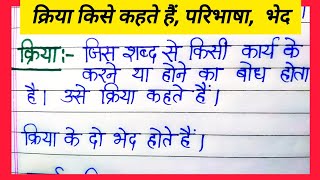 क्रिया किसे कहते हैं, परिभाषा, भेद
क्रिया:- जिस शब्द से किसी कार्य के
करने या होने का बोध होता
है। उसे क्रिया कहते हैं।
क्रिया के दो भेद होते हैं।